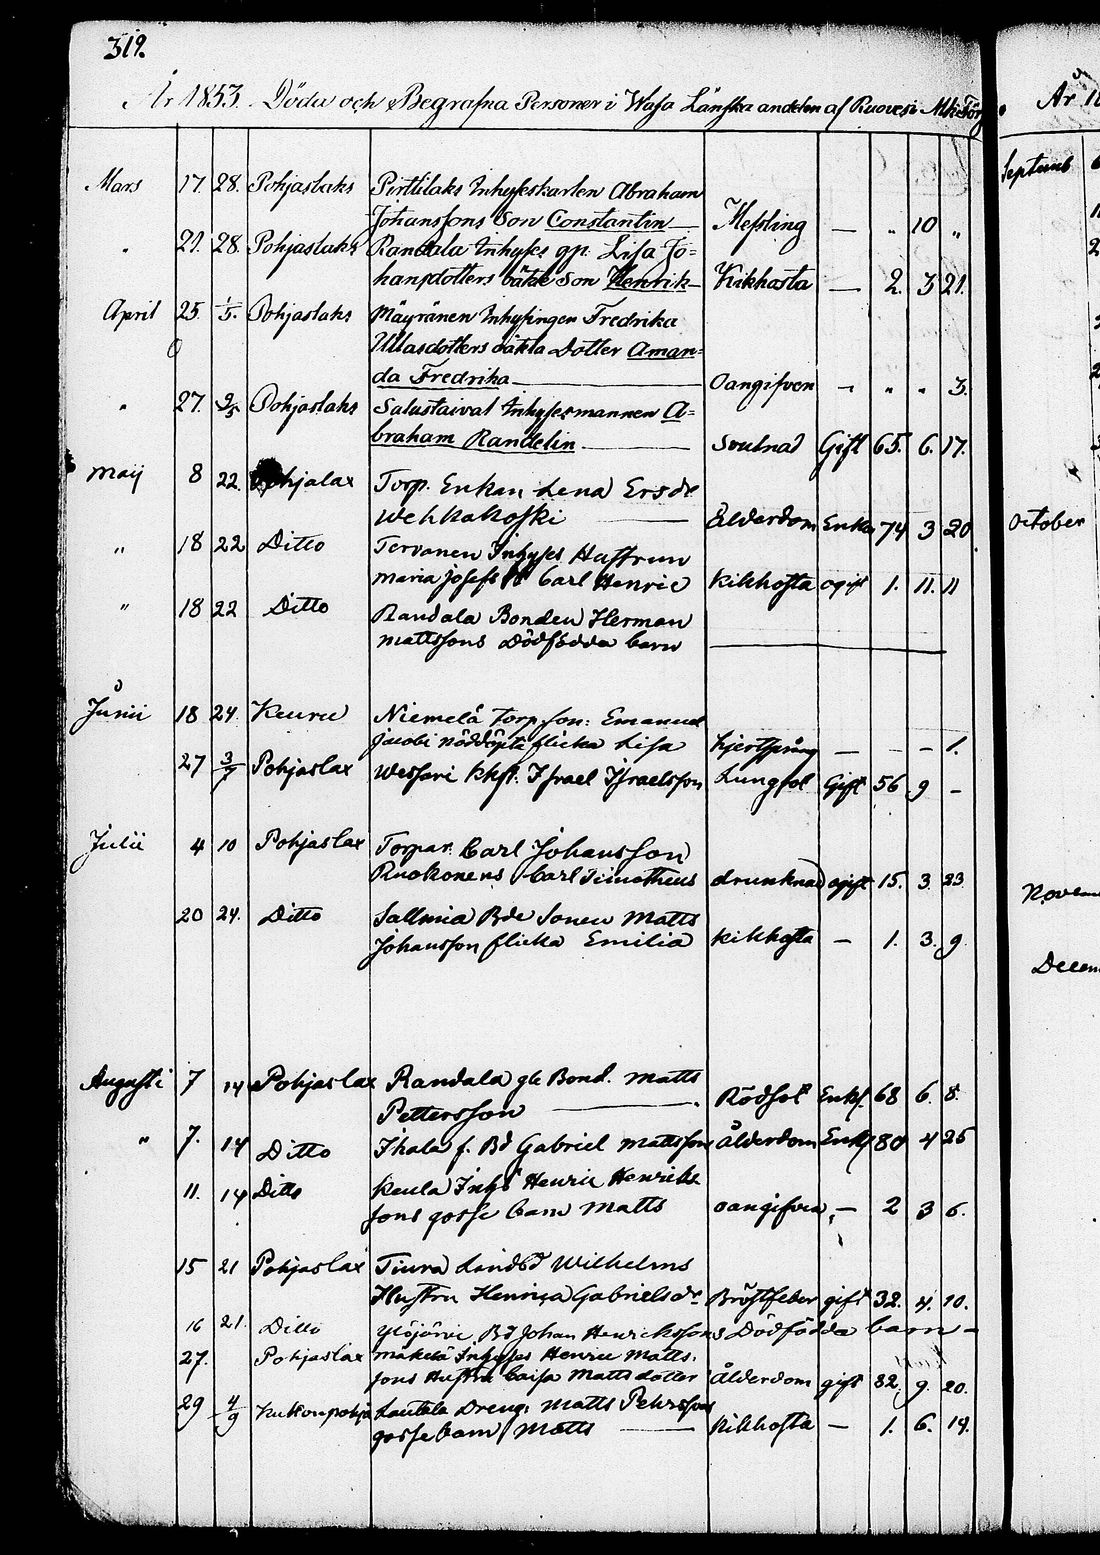 319.
År 1853. Döda och Begrafna Personer i Wasa Länska andelen af Ruovesi
År 18
Mars 17. 28. Pohjaslaks Pirttilaks Inhyseskarlen Abraham
Johanssons Son Constantin — Messling — " 10 "
" 21. 28. Pohjaslaks Randala Inhyses qp. Lisa Jo-
hansdotters oäkta Son Henrik — Kikhosta — 2. 3 21.
April 25 1/5. Pohjaslaks Mäyränen Inhysingen Fredrika
Ullasdotters oäkta Dotter Aman-
da Fredrika — Oangifven — " " 3.
" 27. 2/5 Pohjaslaks Salustaival Inhysesmannen A-
braham Randelin — Svulnad Gift 65. 6. 17.
Maij 8 22. Pohjalax Torp. Enkan Lena Ersdr
Wehkakoski — Ålderdom Enka 74 3 20
" 18 22 Ditto Tervanen Inhyses Hustrun
Maria Josefs Carl Henric Kikhosta ogift 1. 11. 11
" 18 22 Ditto Randala Bonden Herman
Mattssons Dödfödda barn —
Junii 18 24. Keuru Niemelä Torp son: Emanuel
Jacobi nöddöpta flicka Lisa hjertsprång — - - 1.
27 3/7 Pohjaslax Wessari Israel Israelsson Lungsot Gift 56 9 -
Julii 4 10 Pohjaslax Torpar. Carl Johansson
Ruokonens Carl Timotheus drunknad ogift 15. 3. 23
20 24. Ditto Sallmia Bde Sonen Matts
Johansson flicka Emilia Kikhosta — 1. 3. 9.
Augusti 7 14 Pohjaslax Randala gle Bond. Matts
Pettersson — Rödsot Enkl. 68 6. 8.
" 7. 14 Ditto Ihala f. Bd Gabriel Mattsson Ålderdom Enkl 80 4 25
11. 14 Ditto Keula Inhs Henric Henriks
sons gosse barn Matts oangifven — 2 3 6.
15 21 Pohjaslax Tiura Landbd Wilhelms
Hustru Henrica Gabrielsdr Bröstfeber gift 32. 4. 10.
16 21. Ditto Ylöjärvi Bd Johan Henrickssons Dödfödda barn -
27. Pohjaslax Mäkelä Inhyses Henric Matts.
sons Hustru Caisa Mattsdotter Ålderdom gift 82 9. 20.
29 4/9 Lautala Dreng: Matts Pehrsson
gosse barn Matts — Kikhosta — 1. 6. 14.
Septemb
October
Novem
Decem